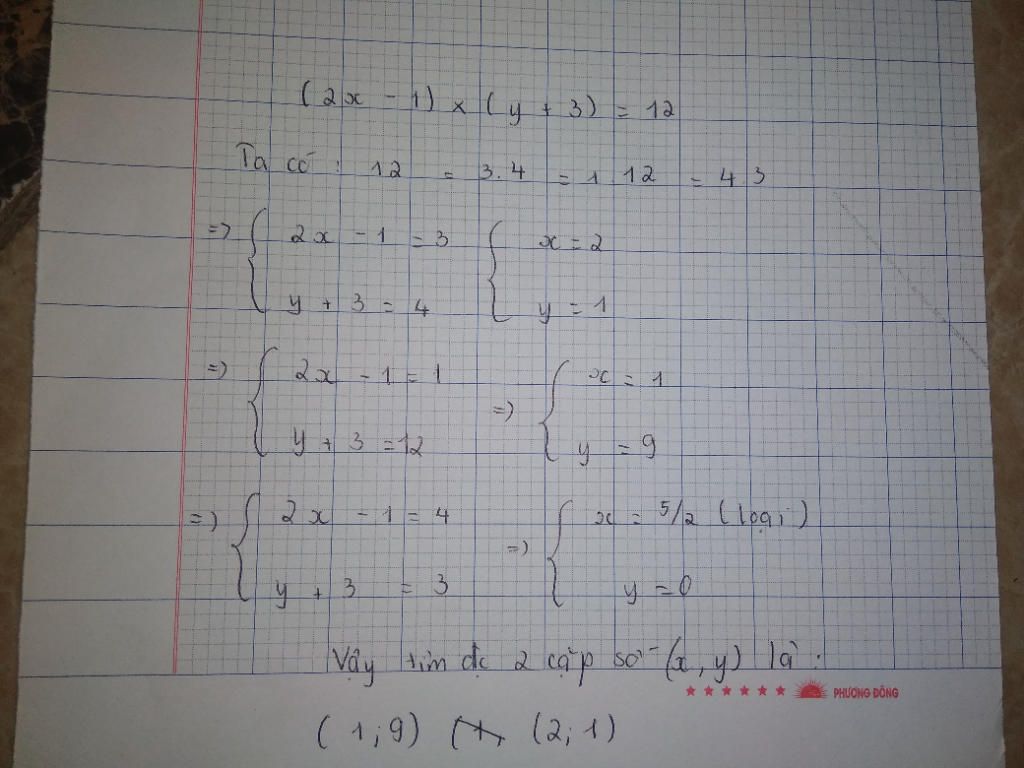 (2x - 1) x (y + 3) = 12
Ta có: 12 = 3.4 = 1 12 = 4.3
=> { 2x - 1 = 3 { x = 2
y + 3 = 4 y = 1
=> { 2x - 1 = 1 => { x = 1
y + 3 = 12 y = 9
=> { 2x - 1 = 4 => { x = 5/2 (loại)
y + 3 = 3 y = 0
Vậy tìm đc 2 cặp số (x, y) là:
PHƯƠNG ĐÔNG
(1; 9) (2; 1)